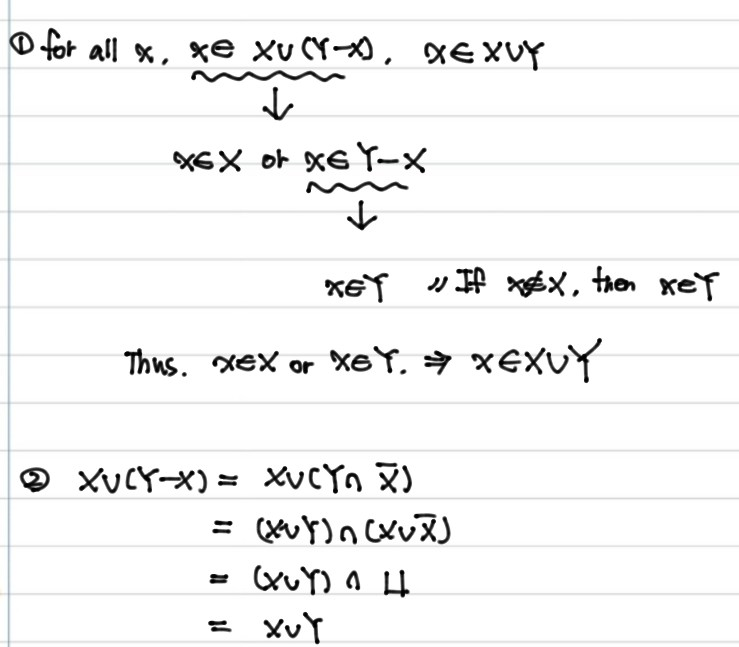 ① for all x, x∈ X∪(Y-X), x∈X∪Y
↓
x∈X or x∈Y-X
↓
x∈Y // If x∉X, then x∈Y
Thus. x∈X or x∈Y. ⇒ x∈X∪Y
② X∪(Y-X) = X∪(Y∩X̅)
= (X∪Y)∩(X∪X̅)
= (X∪Y)∩U
= X∪Y